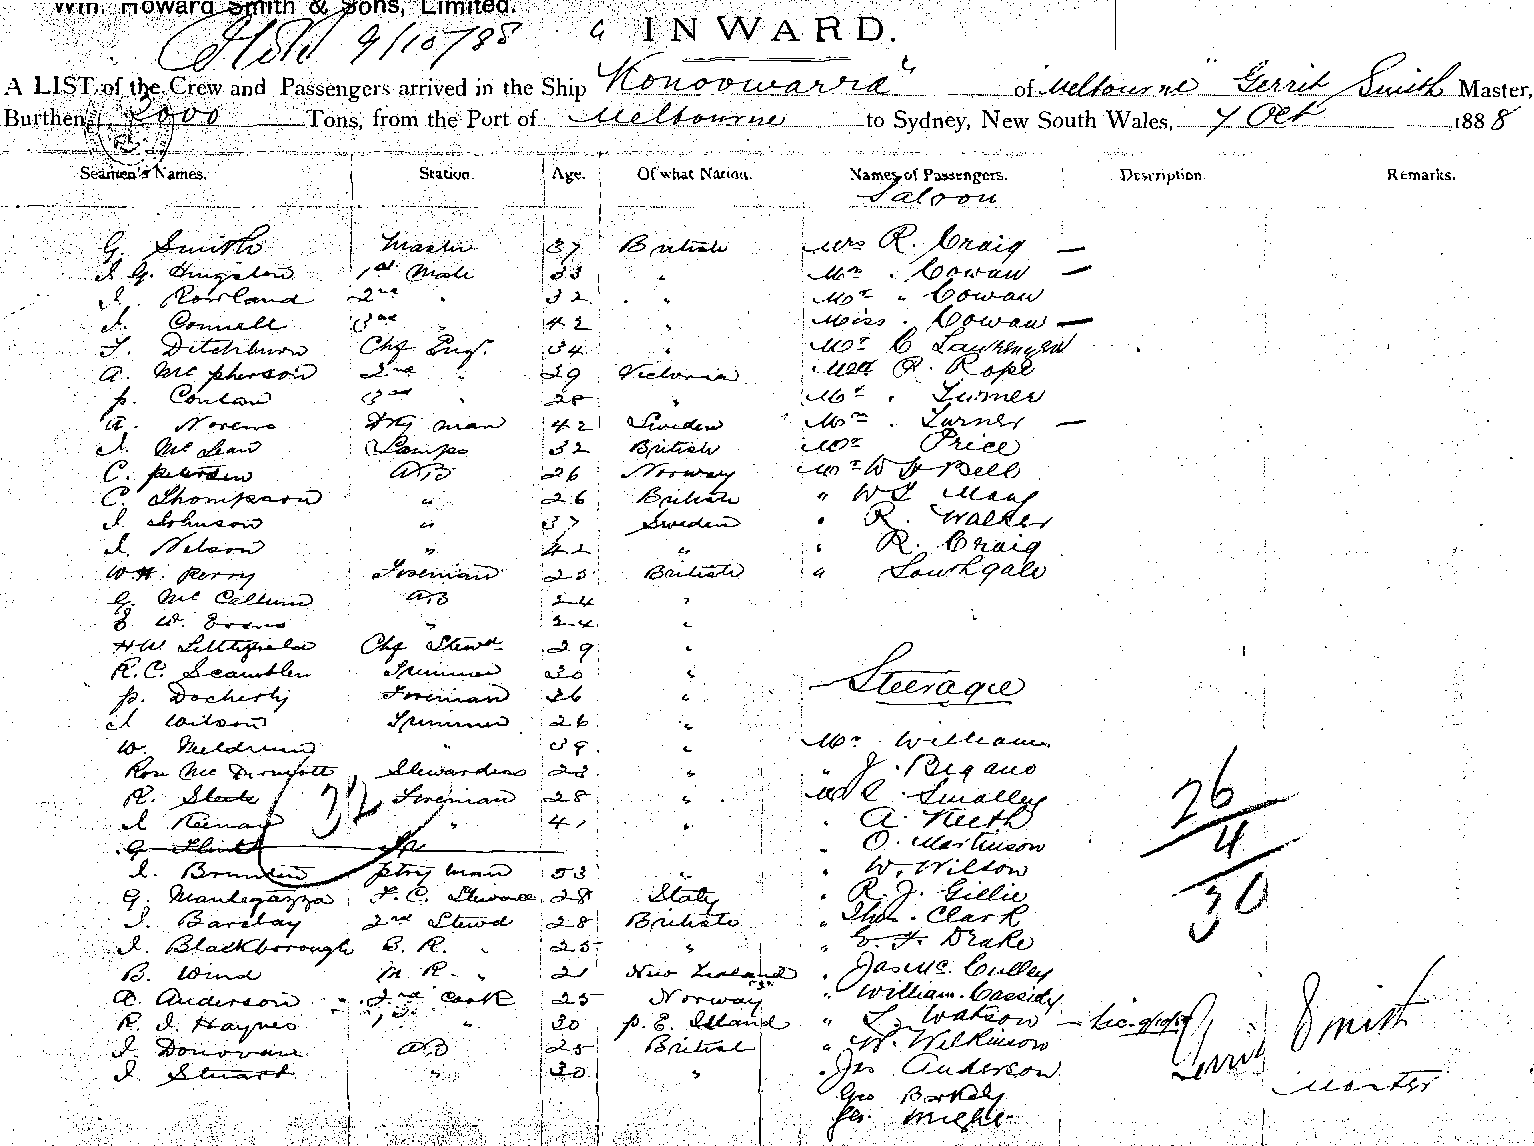 Wm. Howard Smith & Sons, Limited.
9/10/88 INWARD.
A LIST of the Crew and Passengers arrived in the Ship "Konoowarra" of Melbourne Gerrit Smith Master,
Burthen 2000 Tons, from the Port of Melbourne to Sydney, New South Wales, 7 Oct 1888
Seamen's Names. Station. Age. Of what Nation. Names of Passengers. Description. Remarks.
Saloon
G Smith Master 37 British Mrs R. Craig —
J. G. Hingston 1st Mate 33 " Mrs . Cowan —
J. Rowland 2nd " 32 " Mr " Cowan
J. Connell 3rd " 42 " Miss . Cowan —
T. Ditchburn Chf Engr. 34 " Mr C
A. McPherson 2nd " 29 Victoria R. Pope
P. Conlan 3rd " 28 " Mr . Turner
A. Norens Dky man 42 Sweden Mrs . Turner —
J. McLean Lamps 32 British Mr Price
C. Petersen AB 26 Norway Mr W H Bell
C. Thompson " 26 British " W
J. Johnson " 37 Sweden " R. Walker
J. Nelson " 42 " " R. Craig
W.H. Perry Fireman 25 British " Southgate
G. McCallum AB 24 "
E. W. Evans " 24 "
H W Littlefield Chf Stewd 29 "
R. C. Scamblen Trimmer 30 "
Steerage
P. Docherty Fireman 36 "
J Wilson Trimmer 26 "
W. Meldrum " 39 " Mr William
Rose McDermott Stewardess 28 " " J.
R. Steele Fireman 28 " Smalley
J Keenan 32 " 41 " " A. Keeth
26
4
30
G Flint " O. Martinson
J. Ptry man 53 " " W. Wilson
G. Mantegazza F. C. Steward 28 Italy " R. J. Gillie
J. Barclay 2nd Stewd 28 British " Thos. Clark
J. Blackborough B. R. " 25 " " Drake
B. Wind M R. " 21 New Zealand " Jas Mc. Culley
A. Anderson 2nd Cook 25 Norway " William Cassidy
R. J. Haynes 1st " 30 P. E. Island " Watson —
J. Donovan AB 25 British " W. Wilkinson
J Stuart " 30 " " Jas Anderson
Geo
Geo. Wright
Gerrit Smith
Master